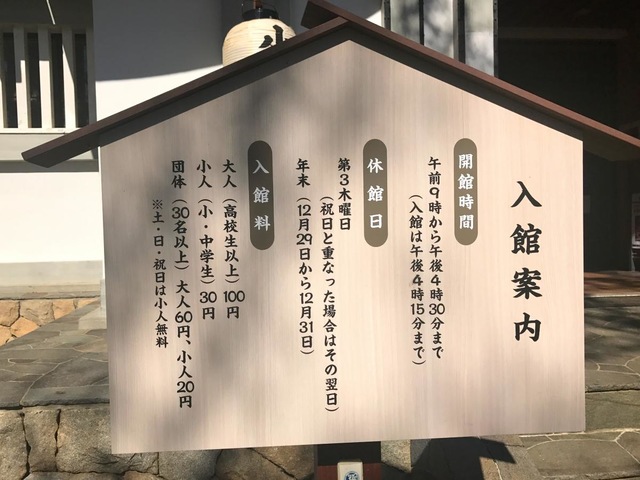 入館案内
開館時間
午前9時から午後4時30分まで
（入館は午後4時15分まで）
休館日
第3木曜日
（祝日と重なった場合はその翌日）
年末（12月29日から12月31日）
入館料
大人（高校生以上）100円
小人（小・中学生）30円
団体（30名以上）大人60円、小人20円
※土・日・祝日は小人無料